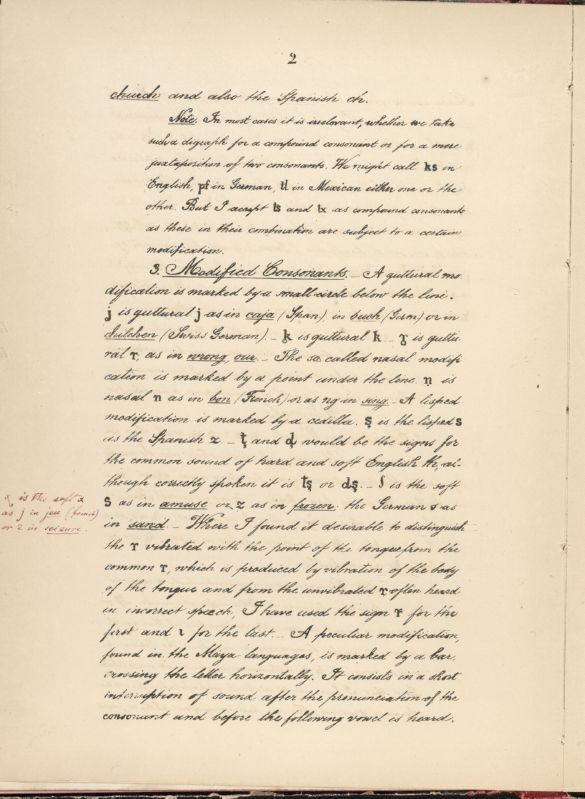 2
church and also the Spanish ch.
Note. In most cases it is irrelevant, whether we take
such a digraph for a compound consonant or for a mere
juxtaposition of two consonants. We might call ks in
English, pf in German, tl in Mexican either one or the
other. But I accept ts and tx as compound consonants
as these in their combination are subject to a certain
modification.
3. Modified Consonants. _ A guttural mo
dification is marked by a small circle below the line.
j̥ is guttural j as in caja (Span), in buch (Germ) or in
(Swiss German). _ k̥ is guttural k _ r̥ is guttu
ral r, as in wrong, _ The so called nasal modifi
cation is marked by a point under the line. ṇ is
nasal n as in bon (French) or as ng in sing. _ A lisped
modification is marked by a cedilla. ş is the lisped s
as the Spanish z _ ţ and d̡ would be the signs for
the common sound of hard and soft English th al-
though correctly spoken it is tş or dş. _ ſ is the soft
s as in amuse or z as in frozen, the German s as
in sand _ Where I found it desirable to distinguish
the r vibrated with the point of the tongue from the
common r, which is produced by vibration of the body
of the tongue and from the unvibrated r often heard
in incorrect speech, I have used the sign r for the
first and ɩ for the last. _ A peculiar modification,
found in the Maya languages, is marked by a bar,
crossing the letter horizontally. It consists in a short
interruption of sound after the pronunciation of the
consonant and before the following vowel is heard.
is the soft x
as j in jeu (french)
or z in seizure.